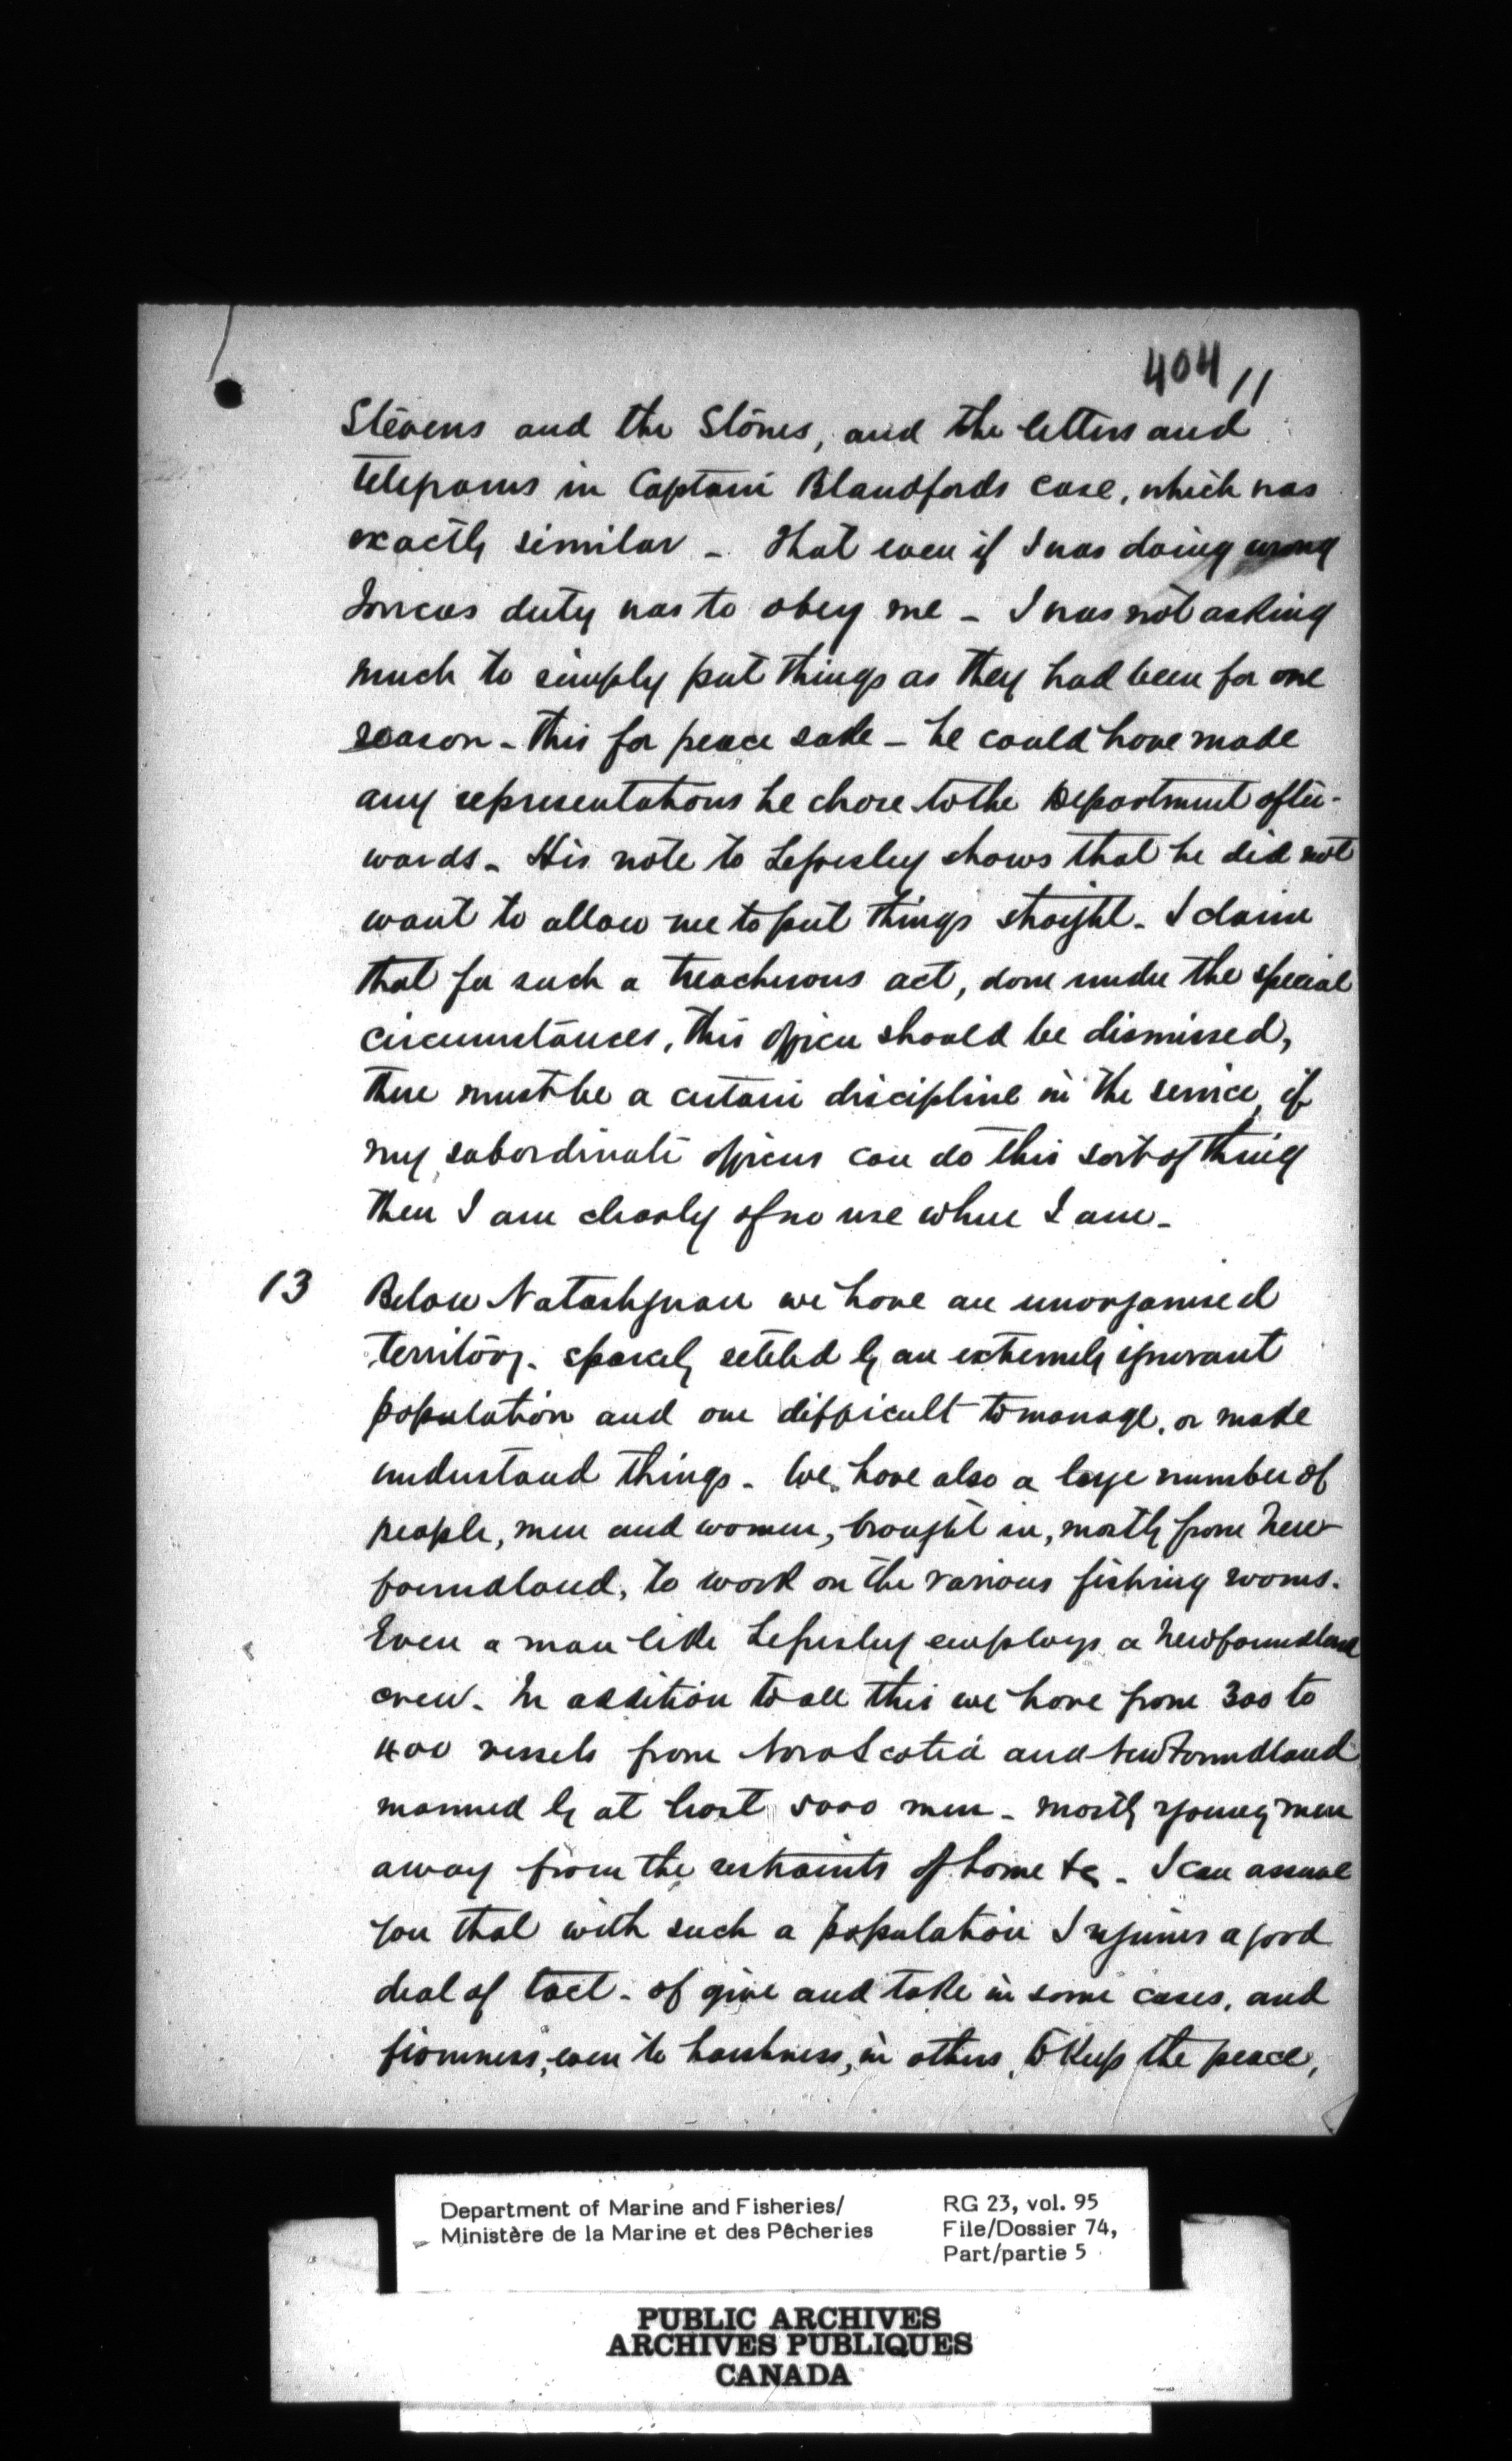 404 11
Stevens and the Stones, and the letters and
telegrams in Captain Blandfords case, which was
exactly similar - That even if I was doing wrong
Joncas duty was to obey me - I was not asking
much to simply put things as they had been for one
season - this for peace sake - he could have made
any representations he chose to the Department after-
wards - His note to Legresley shows that he did not
want to allow me to put things straight - I claim
that for such a treacherous act, done under the special
circumstances, this officer should be dismissed,
there must be a certain discipline in the service, if
my subordinate officers can do this sort of thing
then I am clearly of no use where I am -
13 Below Natashquan we have an unorganised
territory - sparcely settled by an extremely ignorant
population and one difficult to manage, or make
understand things - We have also a large number of
people, men and women, brought in, mostly from New-
foundland, to work on the various fishing rooms.
Even a man like Legresley employs a Newfoundland
crew - In addition to all this we have from 300 to
400 vessels from Nova Scotia and Newfoundland
manned by at least 5000 men - mostly young men
away from the restraints of home &c - I can assure
you that with such a population I requires a good
deal of tact - of give and take in some cases, and
firmness, even to harshness, in others, to keep the peace,
Department of Marine and Fisheries/
Ministère de la Marine et des Pêcheries
RG 23, vol. 95
File/Dossier 74,
Part/partie 5
PUBLIC ARCHIVES
ARCHIVES PUBLIQUES
CANADA